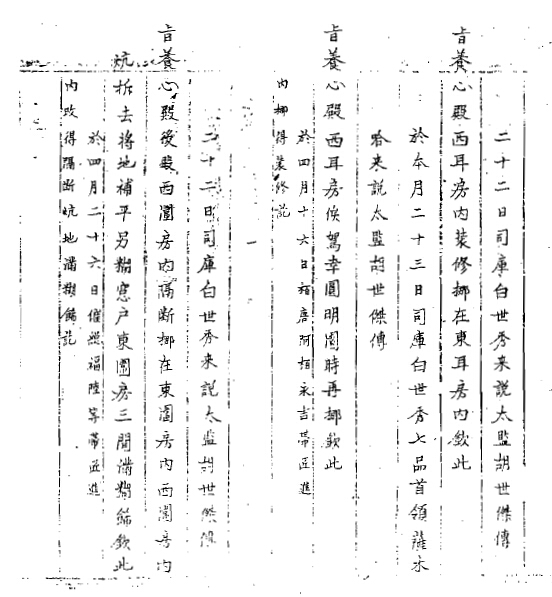 二十二日司庫白世秀来説太監胡世傑傳
旨養心殿西耳房内裝修挪在東耳房内欽此
於本月二十三日司庫白世秀七品首領薩木
哈来説太監胡世傑傳
旨養心殿西耳房俟駕幸圓明園時再挪欽此
於四月十六日栢唐阿栢永吉帶匠進
内挪得裝修訖
二十二日司庫白世秀来説太監胡世傑傳
旨養心殿後殿西圍房内隔断挪在東圍房内西圍房内
炕拆去将地補平另糊窓户東圍房三間滿糊飾欽此
於四月二十六日催總福陸等帶匠進
内改得隔断炕地滿糊飾訖